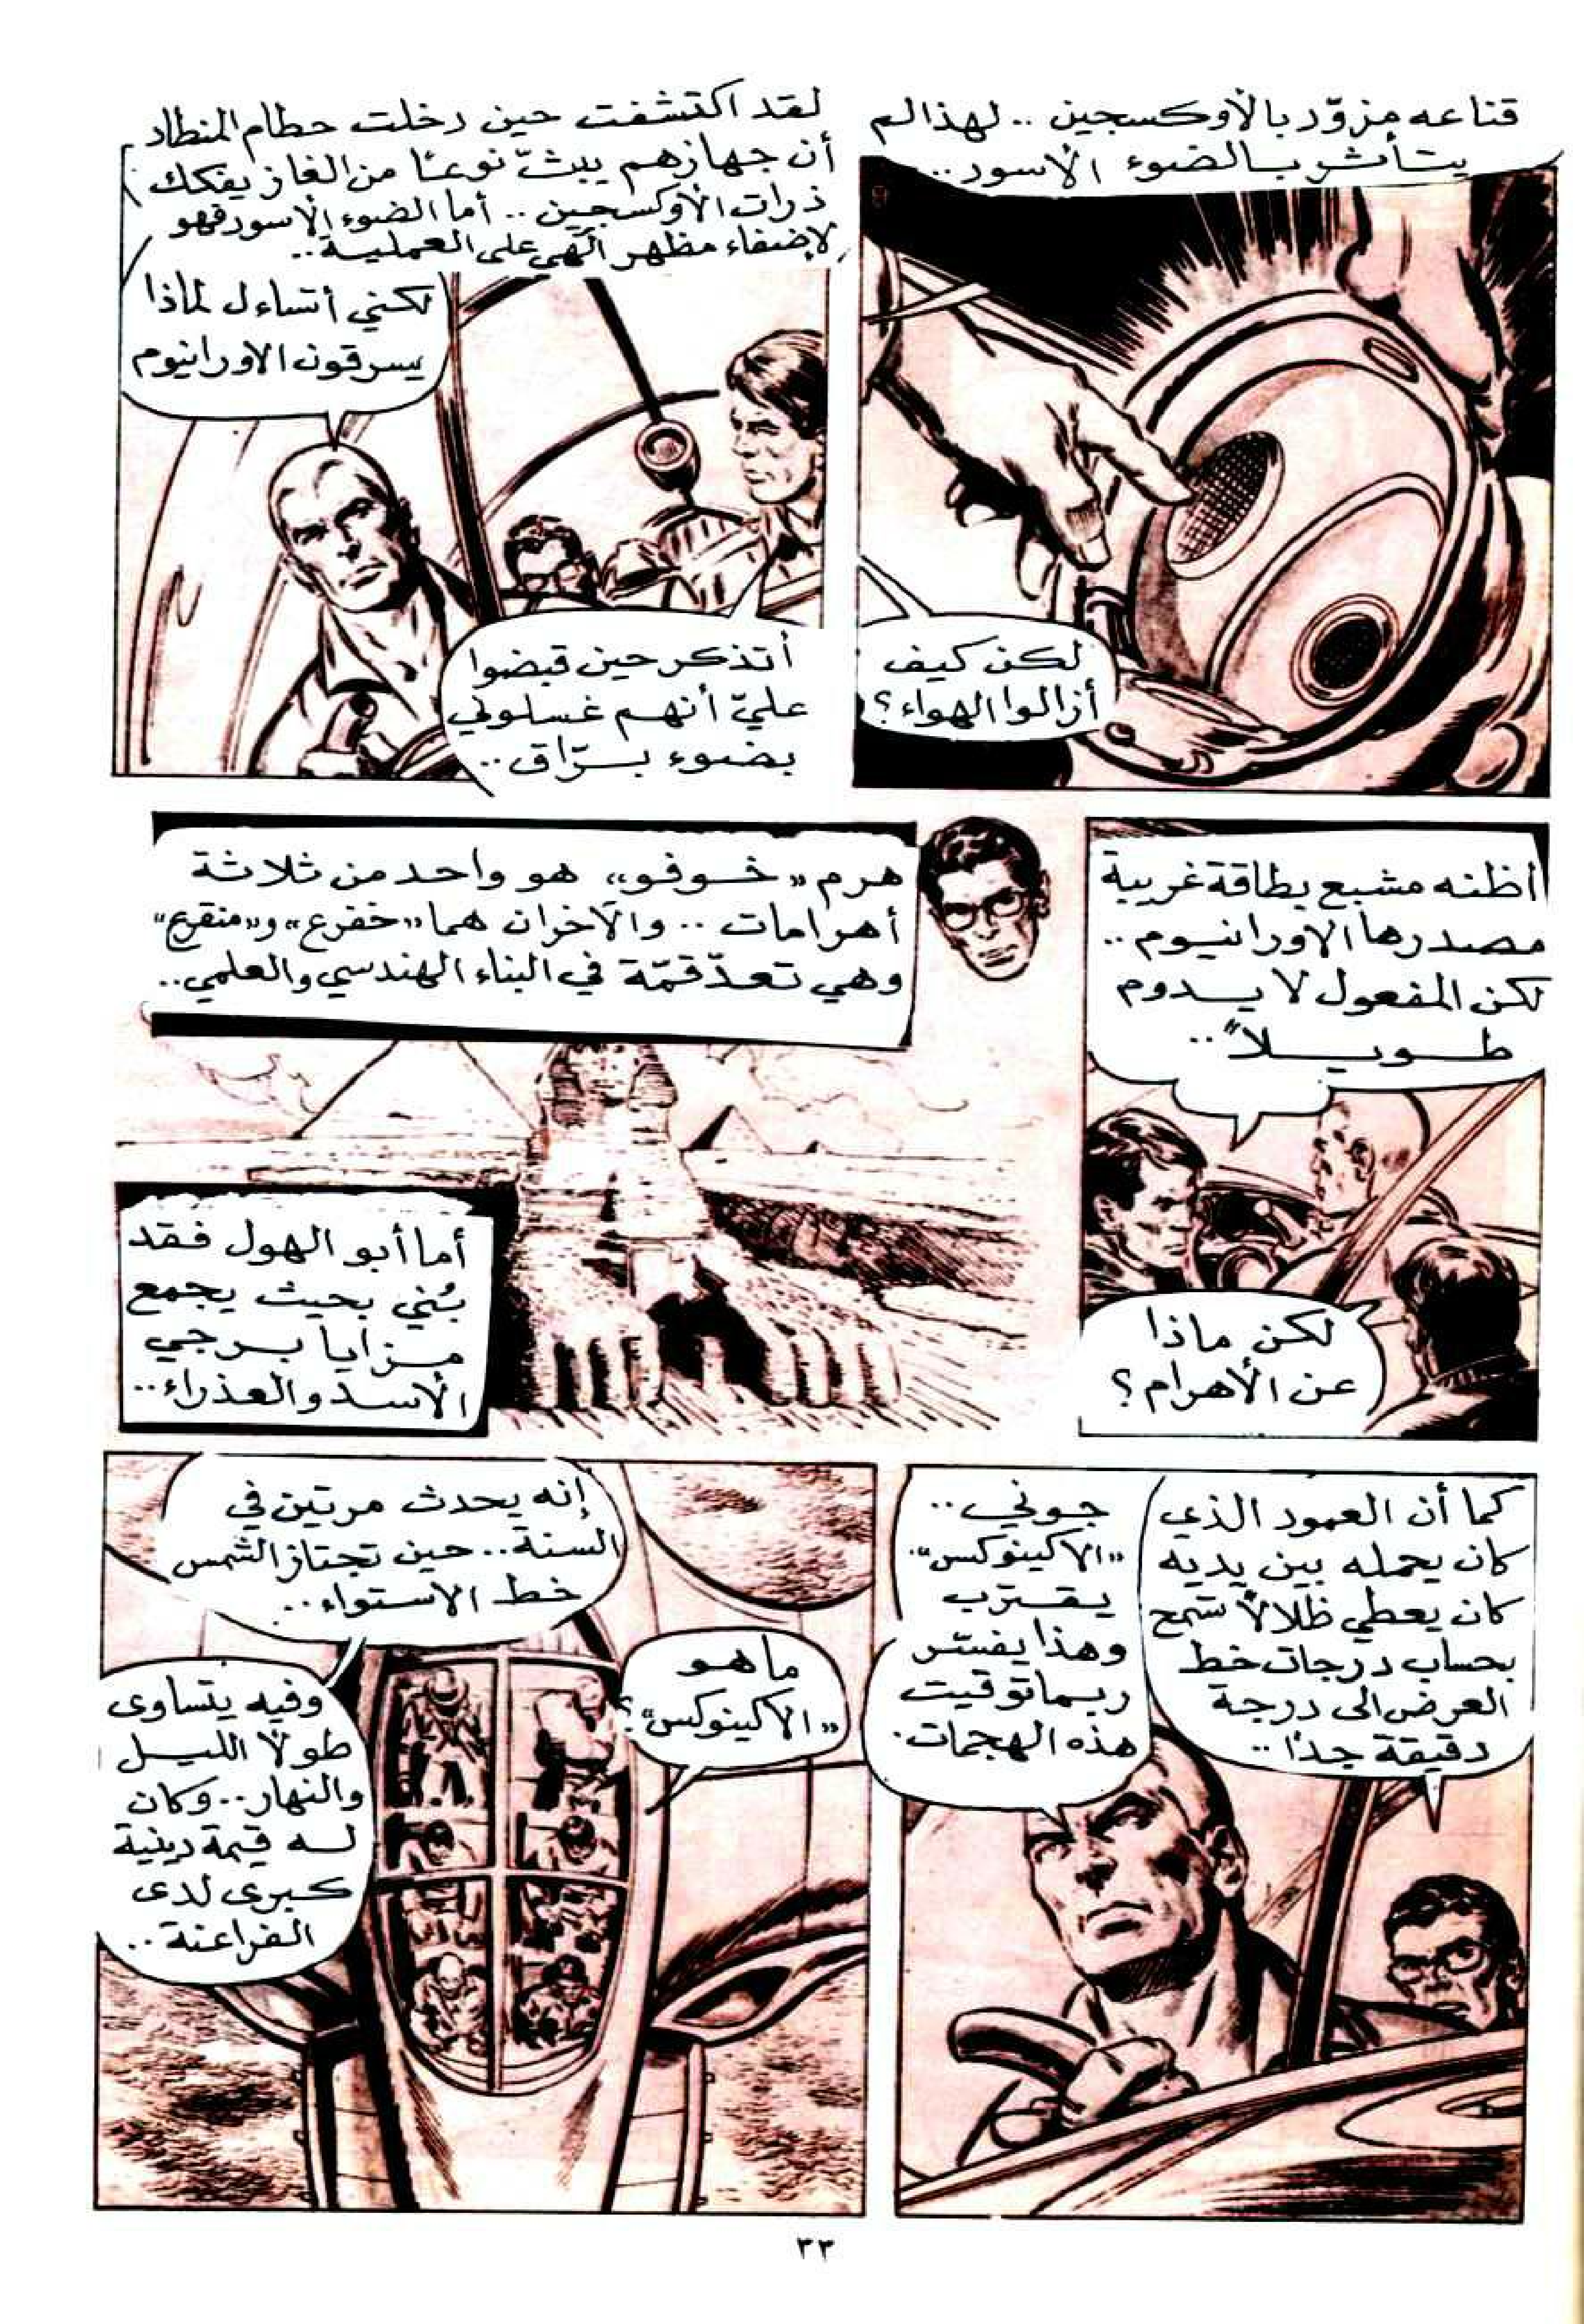 قناعه مزوّد بالأوكسجين .. لهذا لم
يتأثر بالضوء الأسود..
لكن كيف
أزالوا الهواء؟
لقد اكتشفت حين دخلت حطام المنطاد
أن جهازهم يبثّ نوعًا من الغاز يفكك
ذرات الأوكسجين .. أما الضوء الأسود فهو
لإضفاء مظهر إلهي على العملية..
لكني أتساءل لماذا
يسرقون الاورانيوم
أتذكر حين قبضوا
عليّ أنهم غسلوني
بضوء برّاق..
أظنه مشبع بطاقة غريبة
مصدرها الاورانيوم..
لكن المفعول لا يدوم
طويلاً..
لكن ماذا
عن الأهرام؟
هرم «خوفو» هو واحد من ثلاثة
أهرامات .. والآخران هما «خفرع» و«منقرع»
وهي تعدّ قمّة في البناء الهندسي والعلمي..
أما أبو الهول فقد
بُني بحيث يجمع
مزايا برجي
الأسد والعذراء..
كما أن العمود الذي
كان يحمله بين يديه
كان يعطي ظلالاً تسمح
بحساب درجات خط
العرض الى درجة
دقيقة جدًا..
جوني..
«الاكينوكس»
يقترب
وهذا يفسّر
ربما توقيت
هذه الهجمات.
ما هو
«الاكينوكس»؟
إنه يحدث مرتين في
السنة.. حين تجتاز الشمس
خط الاستواء..
وفيه يتساوى
طولا الليل
والنهار.. وكان
له قيمة دينية
كبرى لدى
الفراعنة..
٣٣